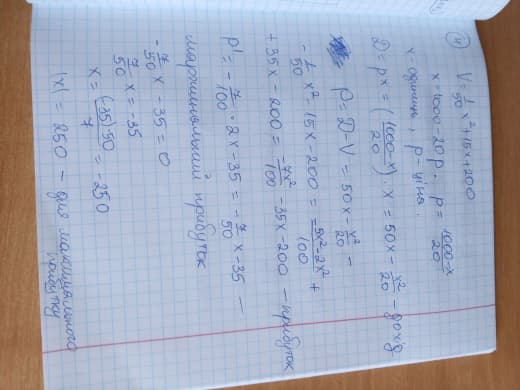 ④ V = 1/50 x² + 15x + 200
x = 1000 - 20p. p = (1000-x)/20
x - одиниць, p - ціна.
D = px = ((1000-x)/20) · x = 50x - x²/20 - дохід
P = D - V = 50x - x²/20 -
- 1/50 x² - 15x - 200 = (-5x² - 2x²)/100 +
+ 35x - 200 = -7x²/100 - 35x - 200 - прибуток
P' = - 7/100 · 2x - 35 = - 7/50 x - 35 -
маржинальний прибуток
- 7/50 x - 35 = 0
7/50 x = -35
x = (-35)·50/7 = -250
|x| = 250 - для максимального
прибутку